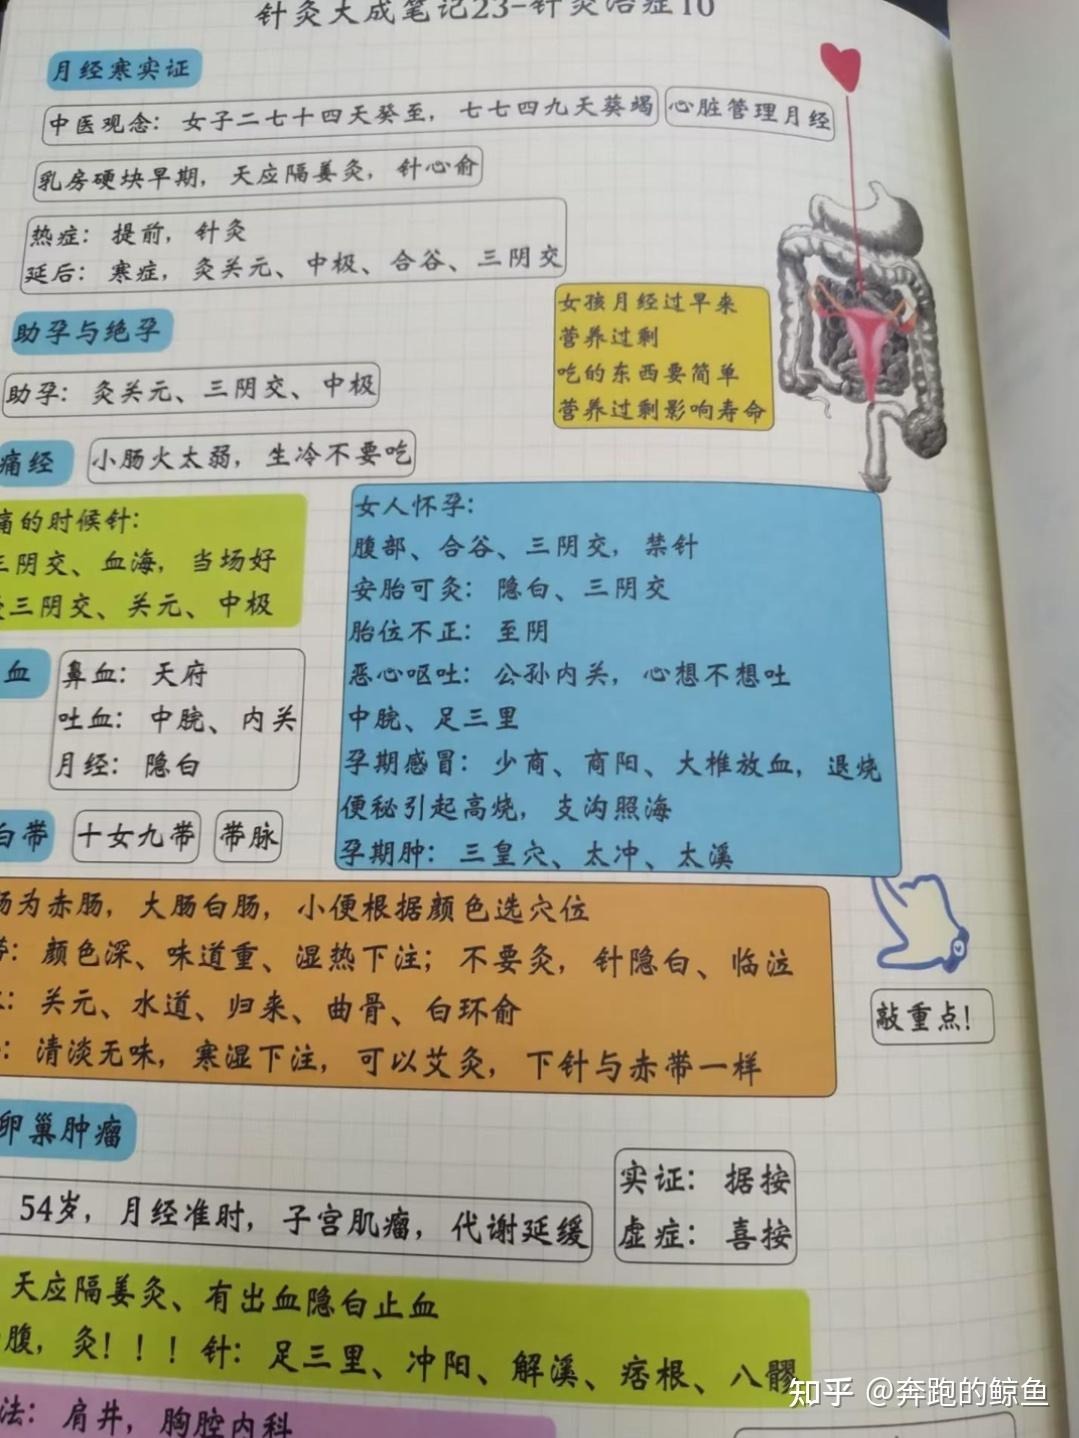 针灸大成笔记23-针灸治症10
月经寒实证
中医观念：女子二七十四天癸至，七七四九天葵竭
心脏管理月经
乳房硬块早期，天应隔姜灸，针心俞
热症：提前，针灸
延后：寒症，灸关元、中极、合谷、三阴交
女孩月经过早来
营养过剩
吃的东西要简单
营养过剩影响寿命
助孕与绝孕
助孕：灸关元、三阴交、中极
痛经
小肠火太弱，生冷不要吃
痛的时候针：
三阴交、血海，当场好
三阴交、关元、中极
女人怀孕：
腹部、合谷、三阴交，禁针
安胎可灸：隐白、三阴交
胎位不正：至阴
恶心呕吐：公孙内关，心想不想吐
中脘、足三里
孕期感冒：少商、商阳、大椎放血，退烧
便秘引起高烧，支沟照海
孕期肿：三皇穴、太冲、太溪
血
鼻血：天府
吐血：中脘、内关
月经：隐白
白带
十女九带
带脉
肠为赤肠，大肠白肠，小便根据颜色选穴位
带：颜色深、味道重、湿热下注；不要灸，针隐白、临泣
：关元、水道、归来、曲骨、白环俞
：清淡无味，寒湿下注，可以艾灸，下针与赤带一样
敲重点！
卵巢肿瘤
54岁，月经准时，子宫肌瘤，代谢延缓
实证：据按
虚症：喜按
天应隔姜灸、有出血隐白止血
腹，灸！！！针：足三里、冲阳、解溪、痞根、八髎
法：肩井，胸腔内科
知乎 @奔跑的鲸鱼